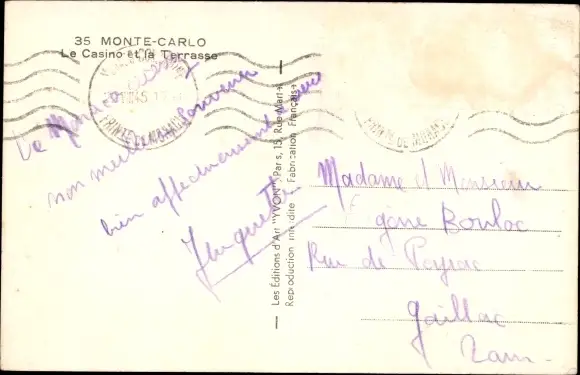 35 MONTE-CARLO
Le Casino et la Terrasse
De Monaco
mon meilleur souvenir
bien affectueusement
Huguette
PRINCIPAUTE DE MONACO
Les Editions d'Art "YVON", Paris, 15, Rue Martel
Reproduction interdite Fabrication Française
Madame et Monsieur
Eugène Bouloc
Rue de Peyrac
Gaillac
Tarn